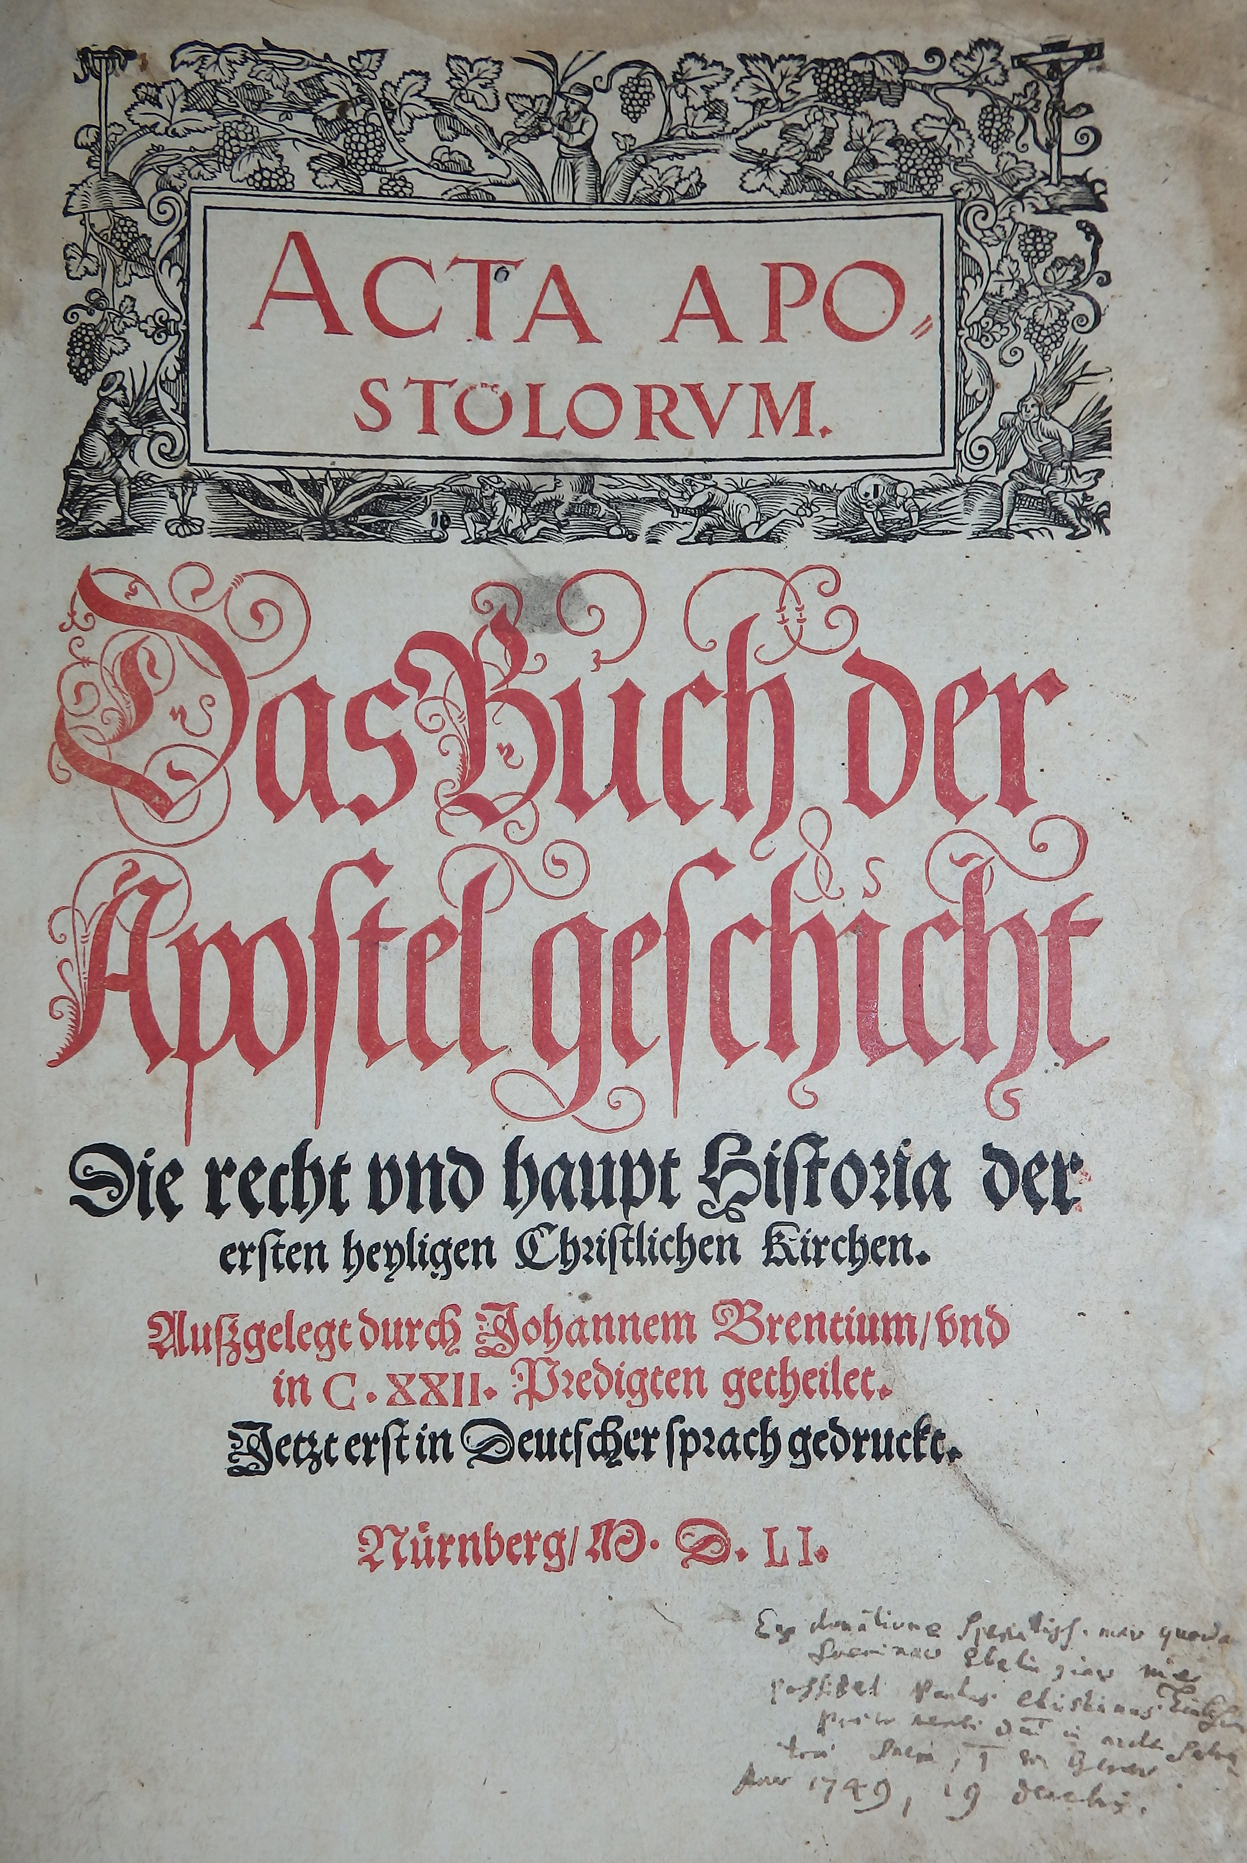 ACTA APO⸗
STOLORVM.
Das Buͦch der
Apostel geschicht
Die recht vnd haupt Historia der
ersten heyligen Christlichen Kirchen.
Außgelegt durch Johannem Brentium/ vnd
in C. XXII. Predigten getheilet.
Jetzt erst in Deutscher sprach gedruckt.
Nürnberg/ M. D. LI.
Ex donatione
possidet
1749, 19